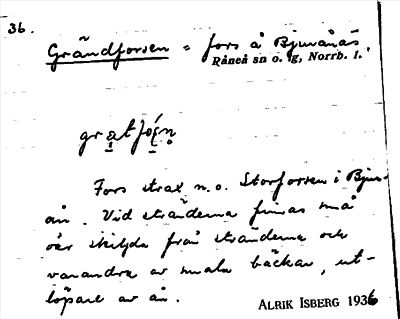 36.
Grändforsen = fors å Bjuränäs,
Råneå sn o. tg, Norrb. l.
Fors strax n.o. Storforsen i Bjur-
ån. Vid stränderna finnas små
öar skilda från stränderna och
varandra av smala bäckar, ut-
löpare av ån.
ALRIK ISBERG 1936